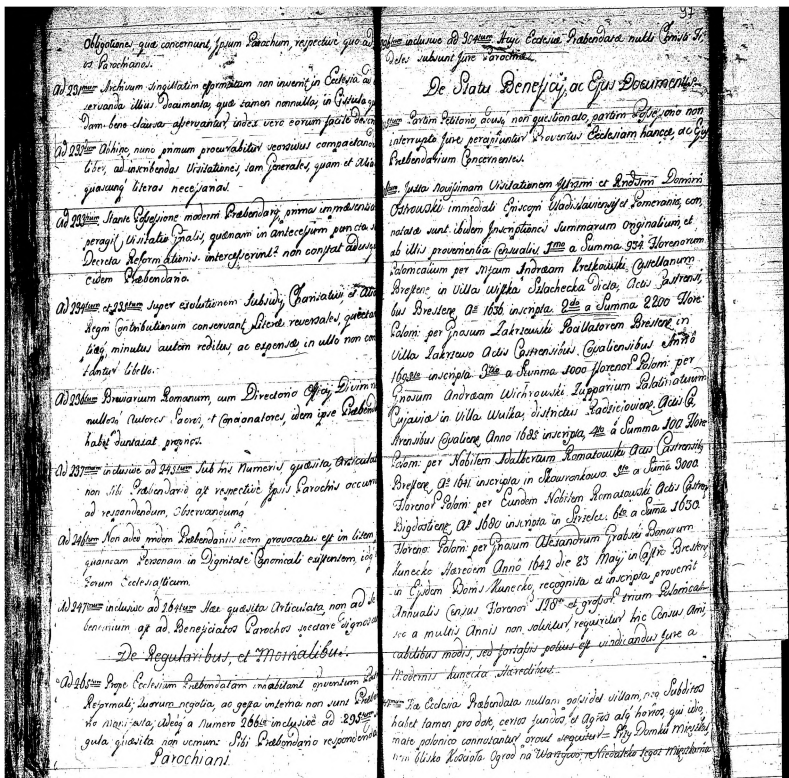 Obligationes quæ concernunt, Ipsum Parochum, respective quo ad
os Parochianos.
Ad 231mum Archivum singillatim non invenit in Ecclesia as
servanda illius Documenta, quæ tamen nonnulla, in Cistula qua
dam bene clausa asservantur index vero eorum facile
Ad 232dum Abhinc, nunc primum procurabitur seorsivus compactandus
liber, ad inscribendas Visitationes, tam Generales, quam et
quascunq literas necessarias.
Ad 233tium Stante Possessione moderni Præbendarij primas
peragit Visitatio Gnalis, quænam in antecessum puncta
Decreta Reformationis intercesserint? non constat
eidem Præbendario.
Ad 234tum et 235tum super exolutionem Subsidij Charitativi, et
Regni Contributionum conservant literæ reversales,
minutus autem reditus, ac expensæ in ullo non
tantur libello.
Ad 236tum Breviarum Romanum, cum Directorio Officij Divini
nullosq Autores Sacros, et Concionatores, idem ipse Præbend
habet duntaxat proprios.
Ad 237mum inclusive ad 245tum Sub his Numeris, quæsita, Articulat
non Sibi Præbendario ast respective Ipsis Parochis
ad respondendum, observandumq
Ad 246tum Non adeo pridem Præbendarius iam provocatus est in litem
quampiam Personam in Dignitate Canonicali existentem,
Forum Ecclesiasticum.
Ad 247mum inclusive ad 264tum Hæc quæsita Articulata non ad
beneficium ast ad Beneficiatos Parochos spectare
De Regularibus, et Monialibus.
Ad 265tum Prope Ecclesiam Præbendatam inhabitant Conventum
Reformati, quorum negotia, ac gesta interna non sunt
rio manifesta, adeoq a numero 266to inclusive ad 295tum
gula quæsita non veniunt Sibi Præbendario respondenda
Parochiani.
97
inclusive ad 304tum Huic Ecclesiæ Præbendatæ nulli Christi Fi
deles subsunt Jure Parochiali.
De Statu Beneficij, ac Ejus Documentis.
Partim Petitorio, acusq non questionato, partim Possessorio non
interrupto Jure percipiuntur Proventus Ecclesiam hancce, ac Ejus
Præbendarium Concernentes.
Juxta novissimam Visitationem Illustrissimi et Rndssmi Domini
Ostrowski immediati Episcopi Vladislaviensis et Pomeraniæ, con
notatæ sunt ibidem Inscriptiones Summarum Originalium, et
ab illis provenientia Censualis. 1mo a Summa 934 Florenorum
Polonicalium per Andream Kretkowski Castellanum
Brestens in Villa Szlachecka dicta, Actis Castrensi
bus Brestens Aº 1636 inscripta. 2do a Summa 2200 Flore:
Polon: per Gnosum Zakrzewski Brestens in
Villa Zakrzewo Actis Castrensibus Covaliensibus Anno
inscripta 3tio a Summa 1000 florenor Polon: per
Gnosum Andream Wichrowski Palatinatuum
Cujaviæ in Villa Wulka, districtus Radzieioviens, Actis Ca
strensibus Covaliens Anno 1685 inscripta, 4to a Summa 100 Flore
Polon: per Nobilem Adalbertum Romatowski Actis Castrensib
Brestens Aº 1641 inscripta in Skowronkowo. 5to a Suma 3000
Florenor Polon: per Eundem Nobilem Romatowski Actis Castren
Bigdostiens Aº 1680 inscripta in Strzelce. 6to a Suma 1630
Floreno: Polon: per Gnosum Alexandrum Grabski Bonorum
Kunecko Hæredem Anno 1642 die 23 Maij in Castro Bresten
in Ejsdem Bonis Kunecko, recognita et inscripta, provenit
Annualis Census Florenor 128 et grossor trium Polonical
sec a multis Annis non solvitur, requiritur hic Census Ami
cabilibus modis, sed fortassis potius est vindicandus Jure a
Modernis Kunecka Hæredibus.
Hæc Ecclesia Præbendata nullam possidet villam, nec Subditos
habet tamen pro dote, certos fundos, et Agros atq hortos, qui idio
mate polonico connotantur prout sequitur = Przy Domku Mieyskim
blisko Kościoła Ogrod na Warzywo, Niedaleko tegoż Mieszkania